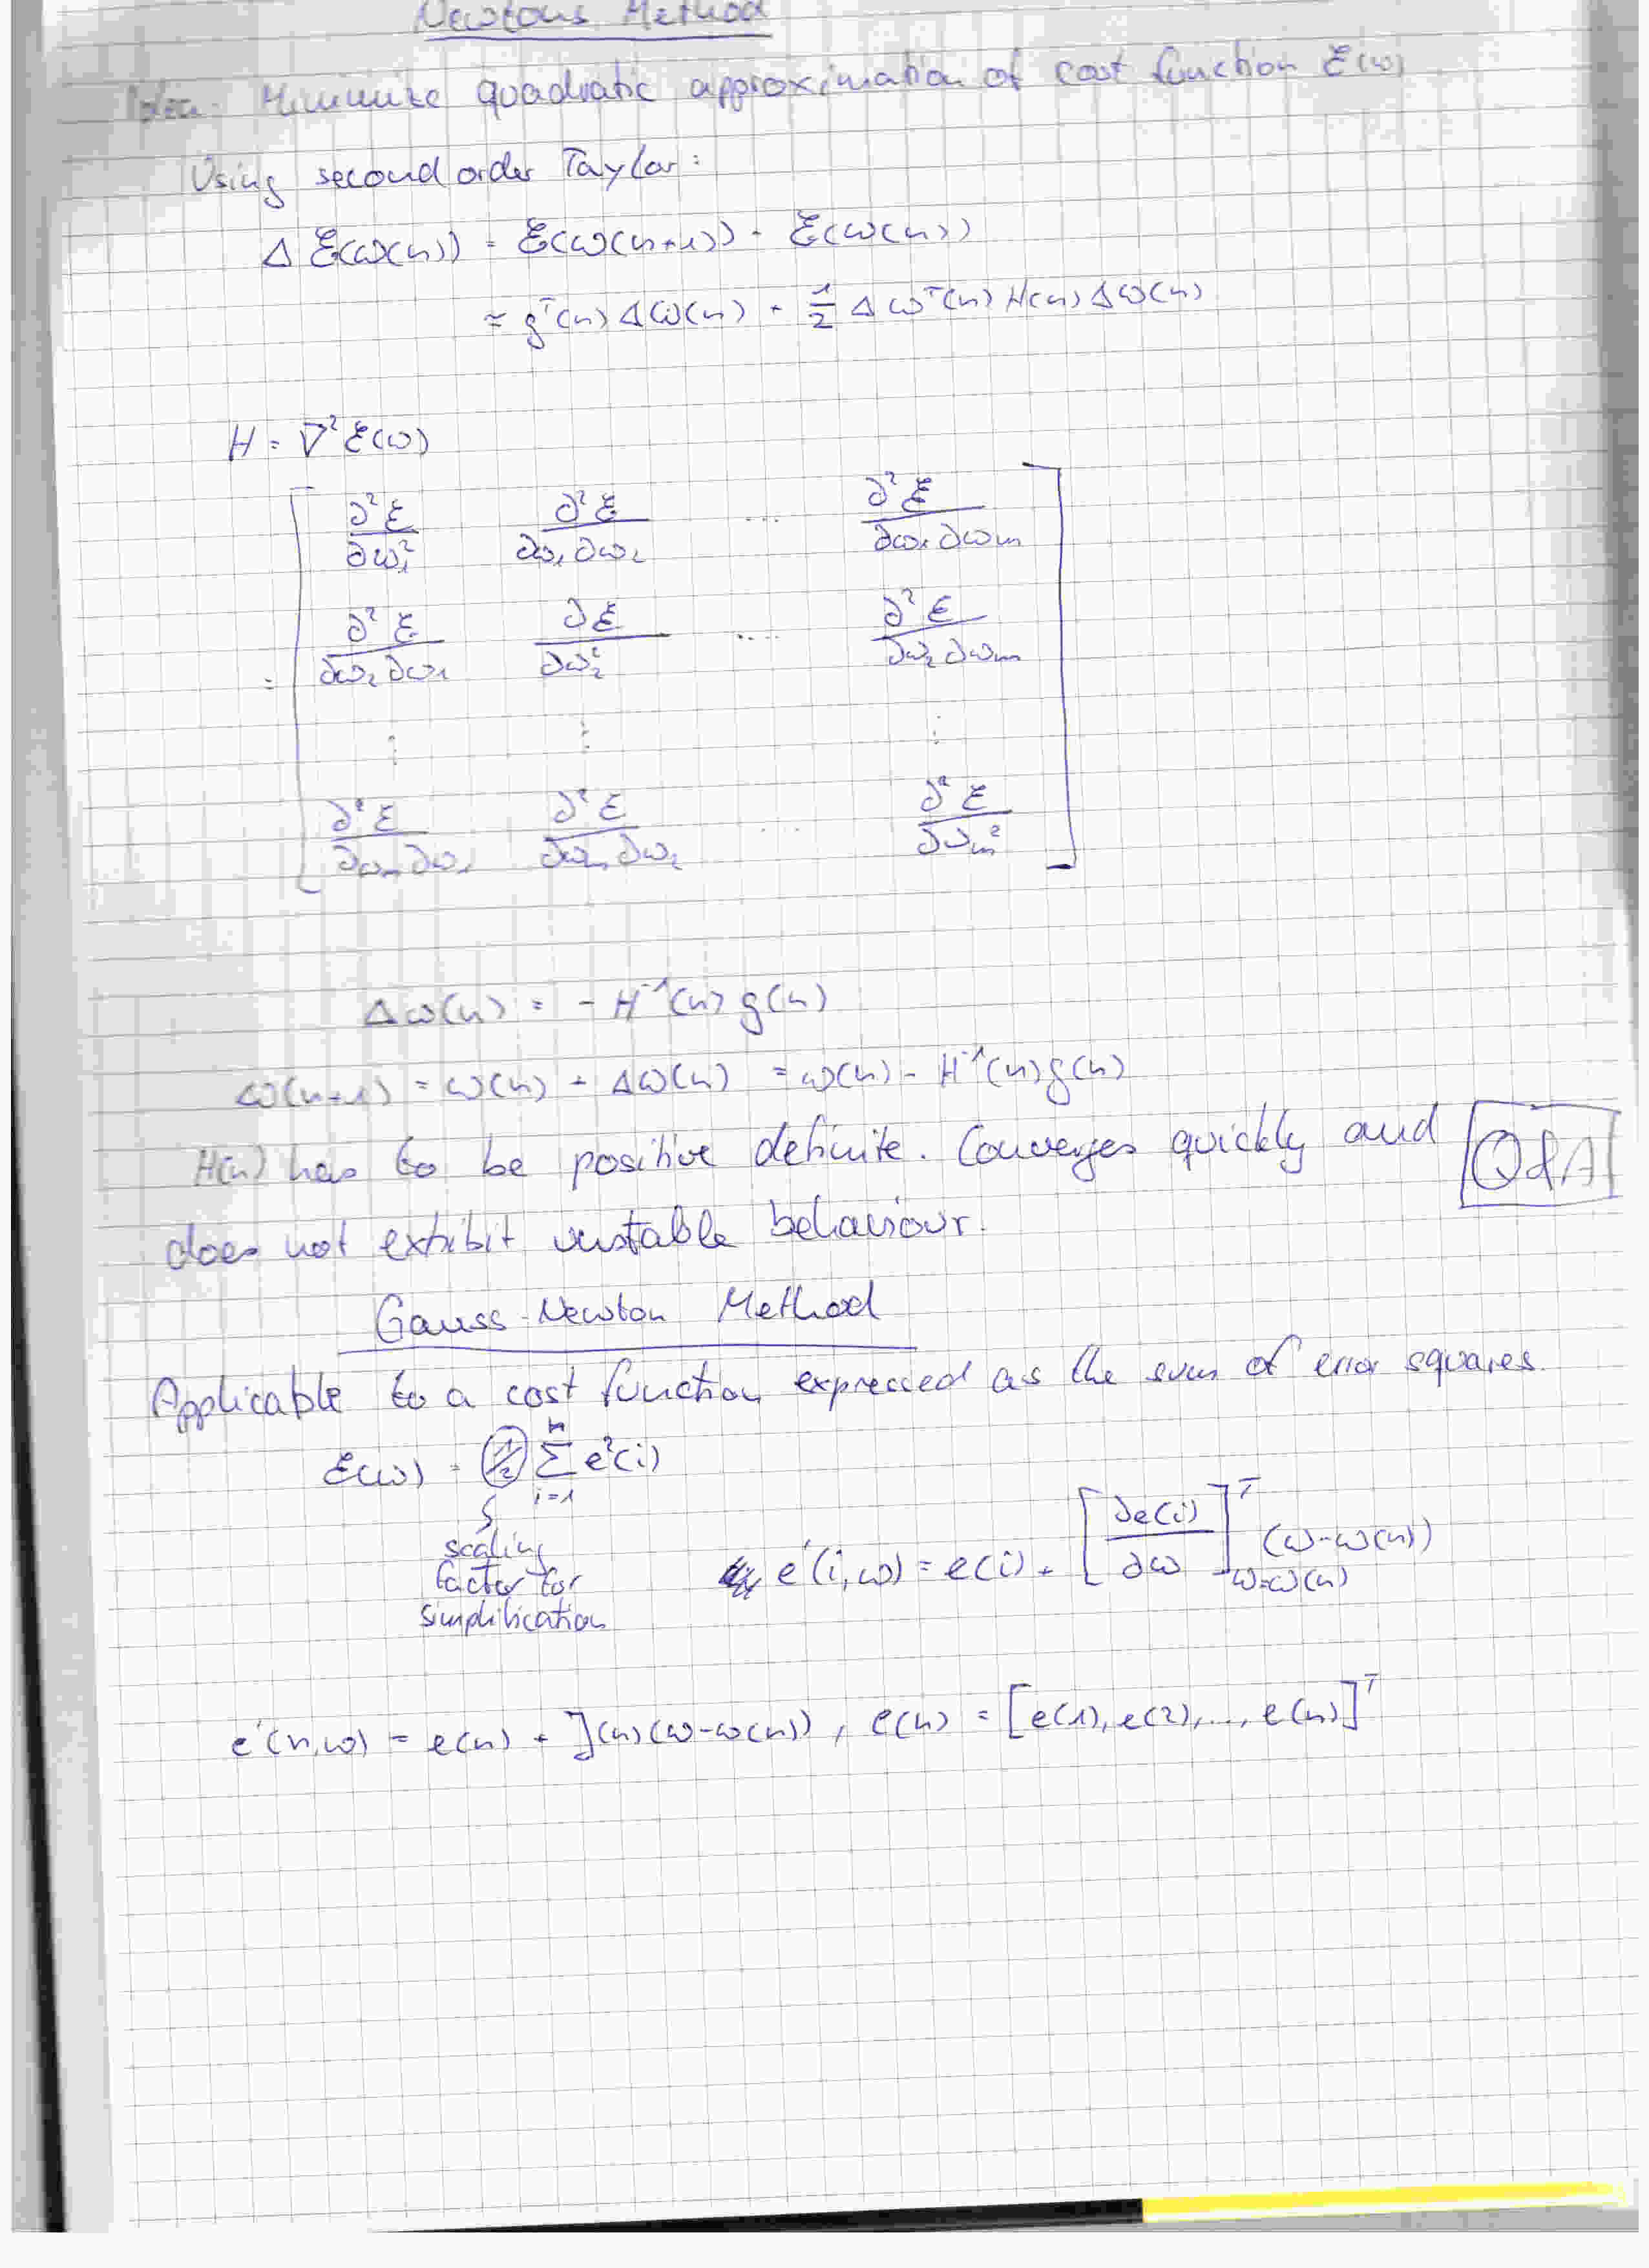 Newtons Method
Idea: Minimize quadratic approximation of cost function ℰ(ω)
Using second order Taylor:
Δ ℰ(ω(n)) = ℰ(ω(n+1)) - ℰ(ω(n))
≈ gᵀ(n) Δω(n) + 1/2 Δωᵀ(n) H(n) Δω(n)
H = ∇²ℰ(ω)
= [ ∂²ℰ/∂ω₁² ∂²ℰ/∂ω₁∂ω₂ ... ∂²ℰ/∂ω₁∂ωm
∂²ℰ/∂ω₂∂ω₁ ∂ℰ/∂ω₂² .... ∂²ℰ/∂ω₂∂ωm
⋮ ⋮ ⋮
∂²ℰ/∂ωm∂ω₁ ∂²ℰ/∂ωm∂ω₂ .... ∂²ℰ/∂ωm² ]
Δω(n) = - H⁻¹(n) g(n)
ω(n+1) = ω(n) + Δω(n) = ω(n) - H⁻¹(n) g(n)
H(n) has to be positive definite. Converges quickly and Q&A
does not exhibit unstable behaviour.
Gauss-Newton Method
Applicable to a cost function expressed as the sum of error squares.
ℰ(ω) = 1/2 Σ_{i=1}^{n} e²(i)
scaling
factor for
simplification
e'(i,ω) = e(i) + [∂e(i)/∂ω]ᵀ_{ω=ω(n)} (ω-ω(n))
e'(n,ω) = e(n) + J(n)(ω-ω(n)), e(n) = [e(1), e(2), ..., e(n)]ᵀ